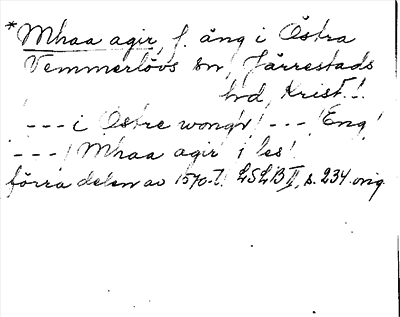 *Mhaa agir, f. äng i Östra
Vemmerlövs sn, Järrestads
hd, Krist. l.
--- i Østre wongh / --- / Eng /
--- / Mhaa agir 1 les /
förra delen av 1570-t. LSLB II, s. 234 orig.